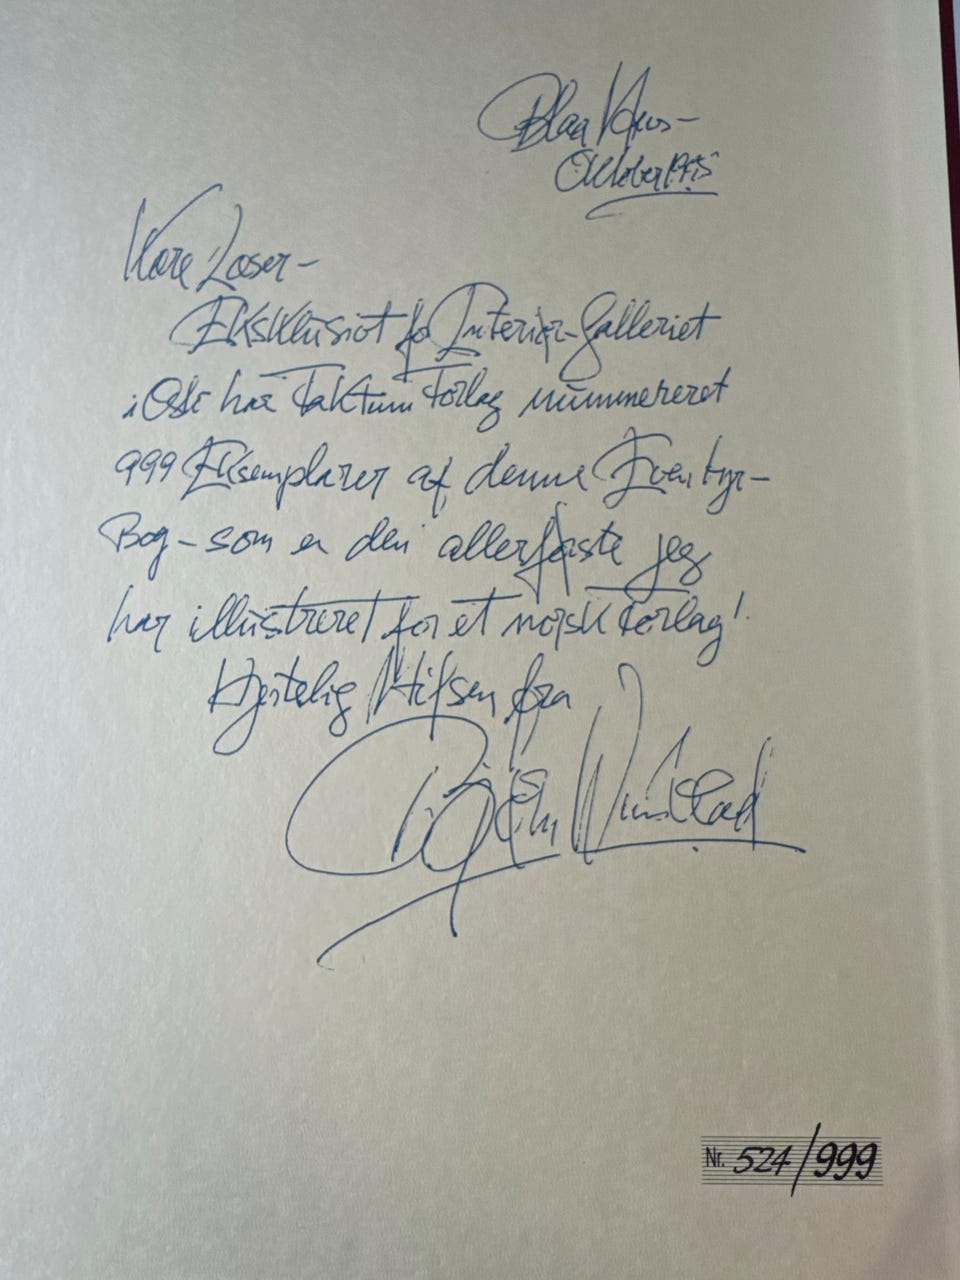 Blaa Hus -
Oktober 1995
Kære Læser -
Eksklusivt for Interiør-Galleriet
i Oslo har Taktum Forlag nummereret
999 Eksemplarer af denne Eventyr-
Bog - som er den allerførste jeg
har illustreret for et norsk Forlag!
Hjertelig Hilsen fra
Bjørn Wiinblad
Nr. 524/999